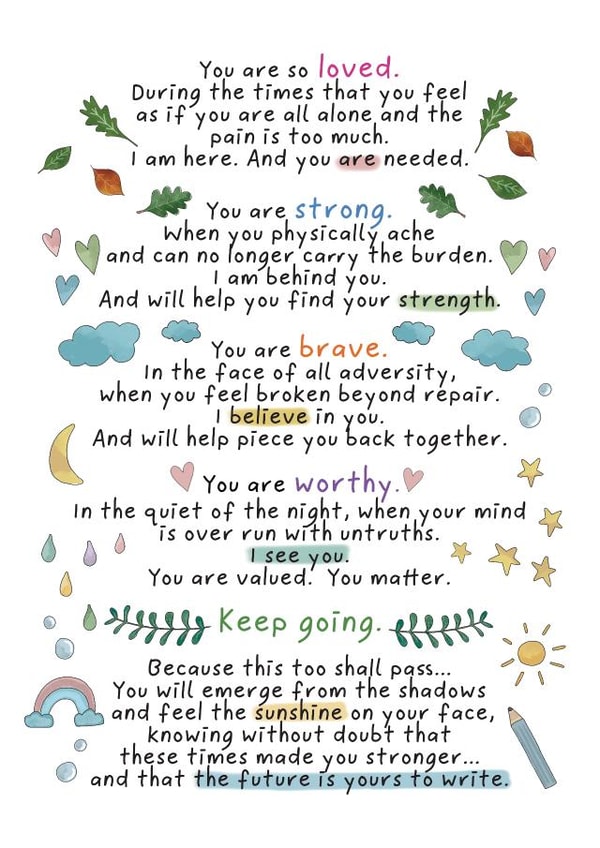 You are so loved.
During the times that you feel
as if you are all alone and the
pain is too much.
I am here. And you are needed.
You are strong.
When you physically ache
and can no longer carry the burden.
I am behind you.
And will help you find your strength.
You are brave.
In the face of all adversity,
when you feel broken beyond repair.
I believe in you.
And will help piece you back together.
You are worthy.
In the quiet of the night, when your mind
is over run with untruths.
I see you.
You are valued. You matter.
Keep going.
Because this too shall pass...
You will emerge from the shadows
and feel the sunshine on your face,
knowing without doubt that
these times made you stronger...
and that the future is yours to write.